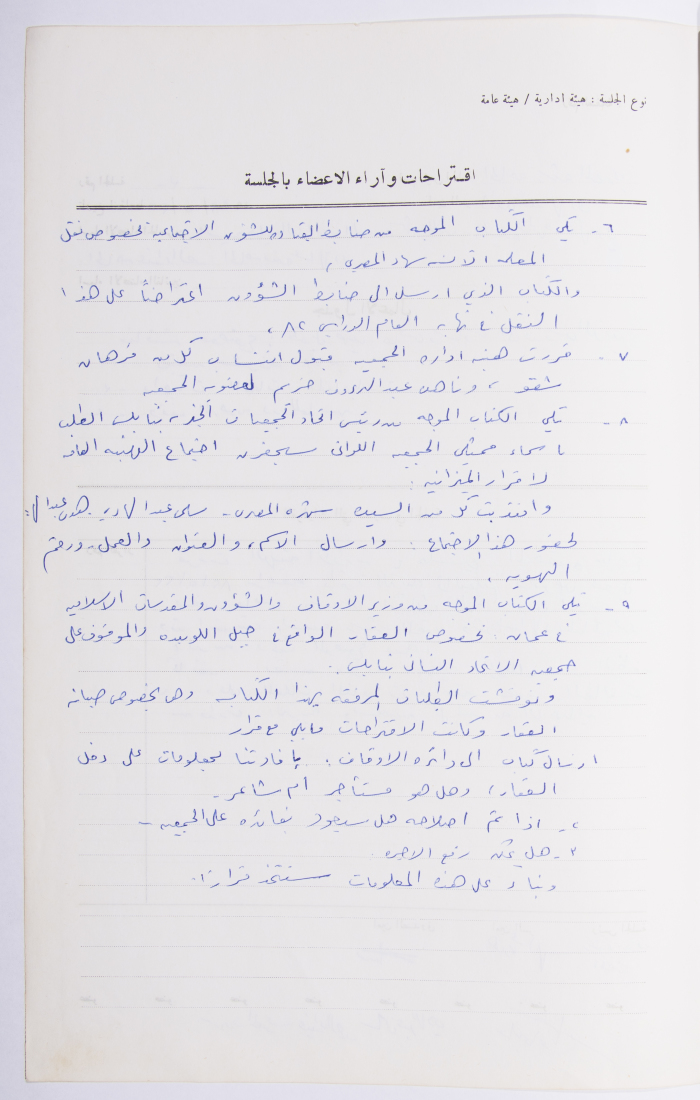 نوع الجلسة : هيئة ادارية / هيئة عامة
اقتراحات وآراء الاعضاء بالجلسة
٦- تلي الكتاب الموجه من ضابط القيادة للشؤون الاجتماعية بخصوص نقل
المعلمه الآنسه سهاد المصري ،
والكتاب الذي ارسل الى ضابط الشؤون اعتراضاً على هذا
النقل في نهاية العام الدراسي ٨٢ .
٧- قررت هيئة ادارة الجمعيه قبول انتساب كل من
شقو ، و عبد الهادي لعضوية الجمعيه
٨- تلي الكتاب الموجه من رئيس اتحاد الجمعيات الخيريه بنابلس الطلب
باسماء ممثلي الجمعيه اللواتي سيحضرن اجتماع الهيئه العامه
لاقرار الميزانيه .
وانتدبت كل من السيده المصري - سلمى عبد الهادي
لحضور هذا الاجتماع . وارسال الاسم ، والعنوان والعمل - ورقم
الهويه .
٩- تلي الكتاب الموجه من وزير الاوقاف والشؤون والمقدسات الاسلاميه
في عمان . بخصوص العقار الواقع في جبل اللويبده والموقوف على
جمعيه الاتحاد النسائي بنابلس .
ونوقشت الطلبات المرفقه بهذا الكتاب وهي بخصوص صيانة
العقار وكانت الاقتراحات مايلي مع قرار
ارسال كتاب الى دائره الاوقاف : بافادتنا بمعلومات على دخل
العقار ، وهل هو مستأجر أم شاغر -
٢- اذا تم اصلاحه هل سيعود بفائده على الجمعيه -
٣- هل يمكن رفع الاجره .
وبناء على هذه المعلومات سنتخذ قرارنا .